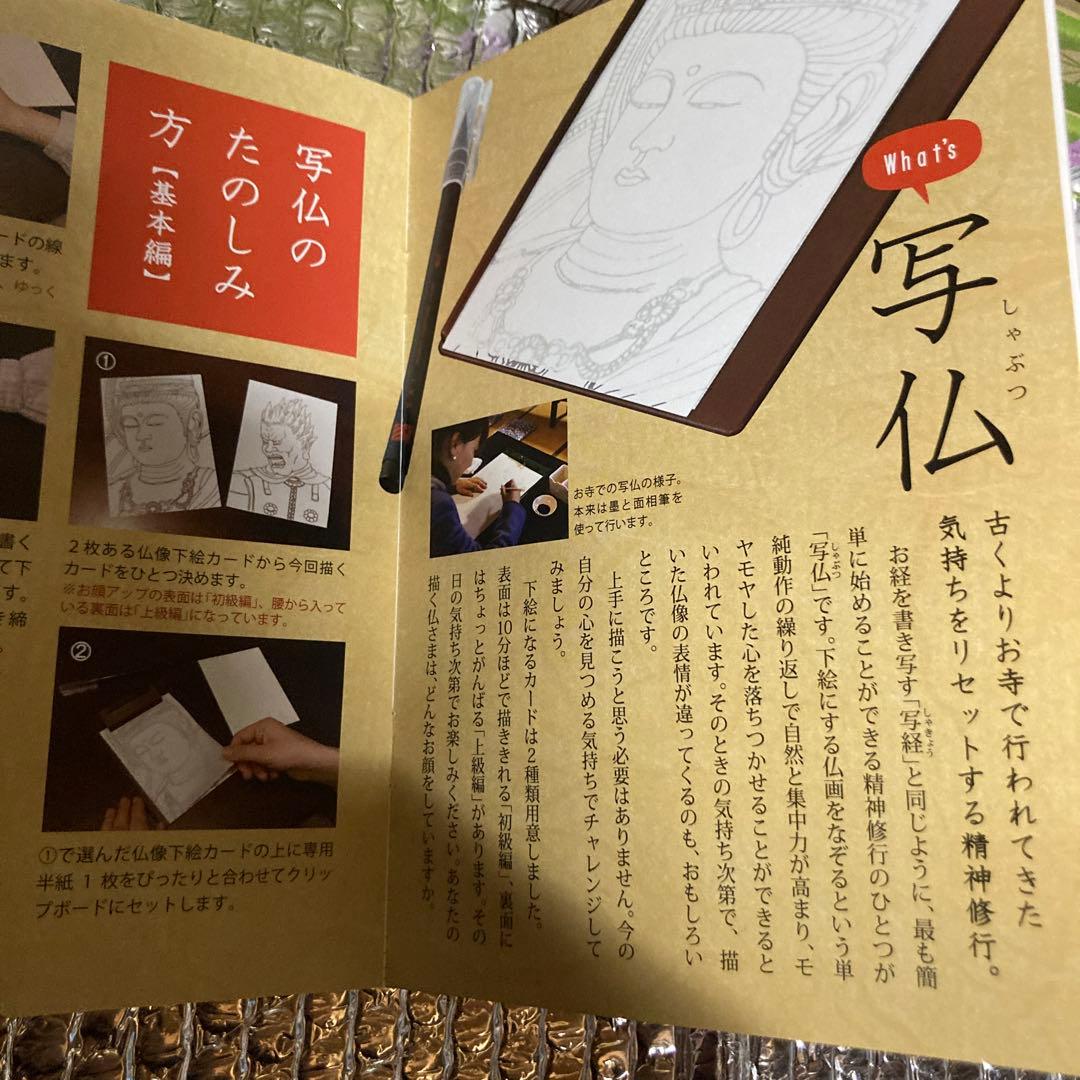 What's
写仏
しゃぶつ
古くよりお寺で行われてきた
気持ちをリセットする精神修行。
お経を書き写す「写経」と同じように、最も簡
しゃきょう
単に始めることができる精神修行のひとつが
「写仏」です。下絵にする仏画をなぞるという単
しゃぶつ
純動作の繰り返しで自然と集中力が高まり、モ
ヤモヤした心を落ちつかせることができると
いわれています。そのときの気持ち次第で、描
いた仏像の表情が違ってくるのも、おもしろい
ところです。
上手に描こうと思う必要はありません。今の
自分の心を見つめる気持ちでチャレンジして
みましょう。
下絵になるカードは2種類用意しました。
表面は10分ほどで描ききれる「初級編」、裏面に
はちょっとがんばる「上級編」があります。その
日の気持ち次第でお楽しみください。あなたの
描く仏さまは、どんなお顔をしていますか。
お寺での写仏の様子。
本来は墨と面相筆を
使って行います。
写仏の
たのしみ
方【基本編】
①
2枚ある仏像下絵カードから今回描く
カードをひとつ決めます。
※お顔アップの表面は「初級編」、腰から入って
いる裏面は「上級編」になっています。
②
①で選んだ仏像下絵カードの上に専用
半紙1枚をぴったりと合わせてクリッ
プボードにセットします。
ードの線
ます。
、ゆっく
書く
て下
す。
き締
。